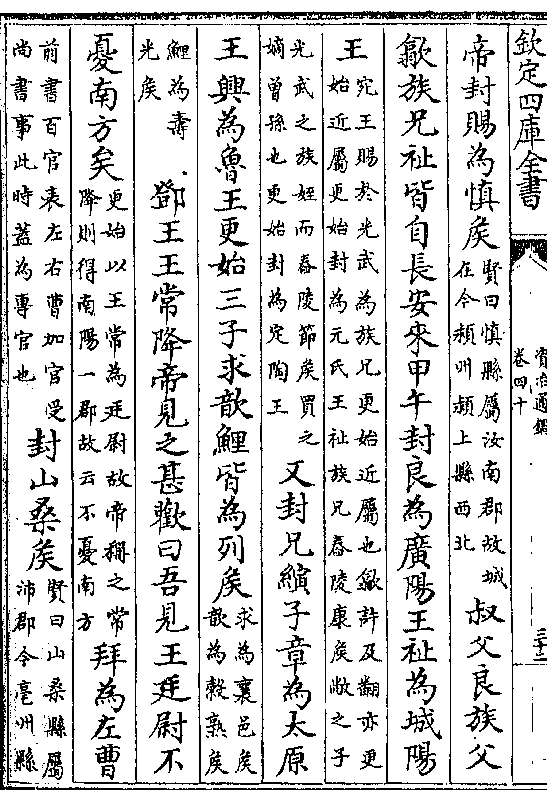 欽定四庫全書
資治通鑑
卷四十
三十二
帝封賜為慎矦
賢曰慎縣屬汝南郡故城
在今潁州潁上縣西北
叔父良族父
歙族兄祉皆自長安來甲午封良為廣陽王祉為城陽
王
宛王賜於光武為族兄更始近屬也歙許及翻亦更
始近屬更始封為元氏王祉族兄舂陵康矦敞之子
光武之族姪而舂陵節矦買之
嫡曾孫也更始封為定陶王
又封兄縯子章為太原
王興為魯王更始三子求歆鯉皆為列矦
求為襄邑矦
歆為穀熟矦
鯉為壽
光矦
鄧王王常降帝見之甚歡曰吾見王廷尉不
憂南方矣
更始以王常為廷尉故帝稱之常
降則得南陽一郡故云不憂南方
拜為左曹
前書百官表左右曹加官受
尚書事此時蓋為專官也
封山桑矦
賢曰山桑縣屬
沛郡今亳州縣